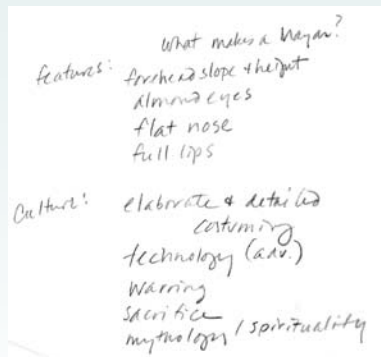 What makes a Mayan?
features: forehead slope & height
almond eyes
flat nose
full lips
Culture: elaborate & detailed
costuming
technology (adv.)
warring
sacrifice
mythology / spirituality